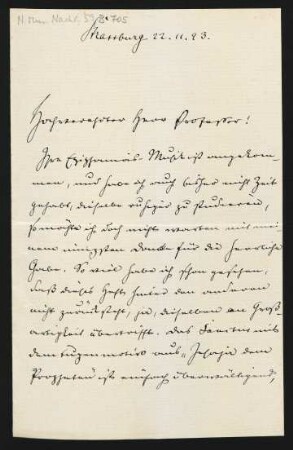 N. Mus. Nachl. 59, B 705
Strassburg 22.11.93.
Hochverehrter Herr Professor!
Ihre Epiphanias-Musik ist angekom-
men, und habe ich auch bisher nicht Zeit
gehabt, dieselbe ruhig zu studieren,
so möchte ich doch nicht warten mit mei-
nem innigsten Danke für die herrliche
Gabe. So viel habe ich schon gesehen,
daß dieses Heft hinter den anderen
nicht zurücksteht, ja, dieselben an Groß-
artigkeit übertrifft. Das Sanctus mit
dem Fugenmotiv aus „Jesaja dem
Propheten" ist einfach überwältigend,